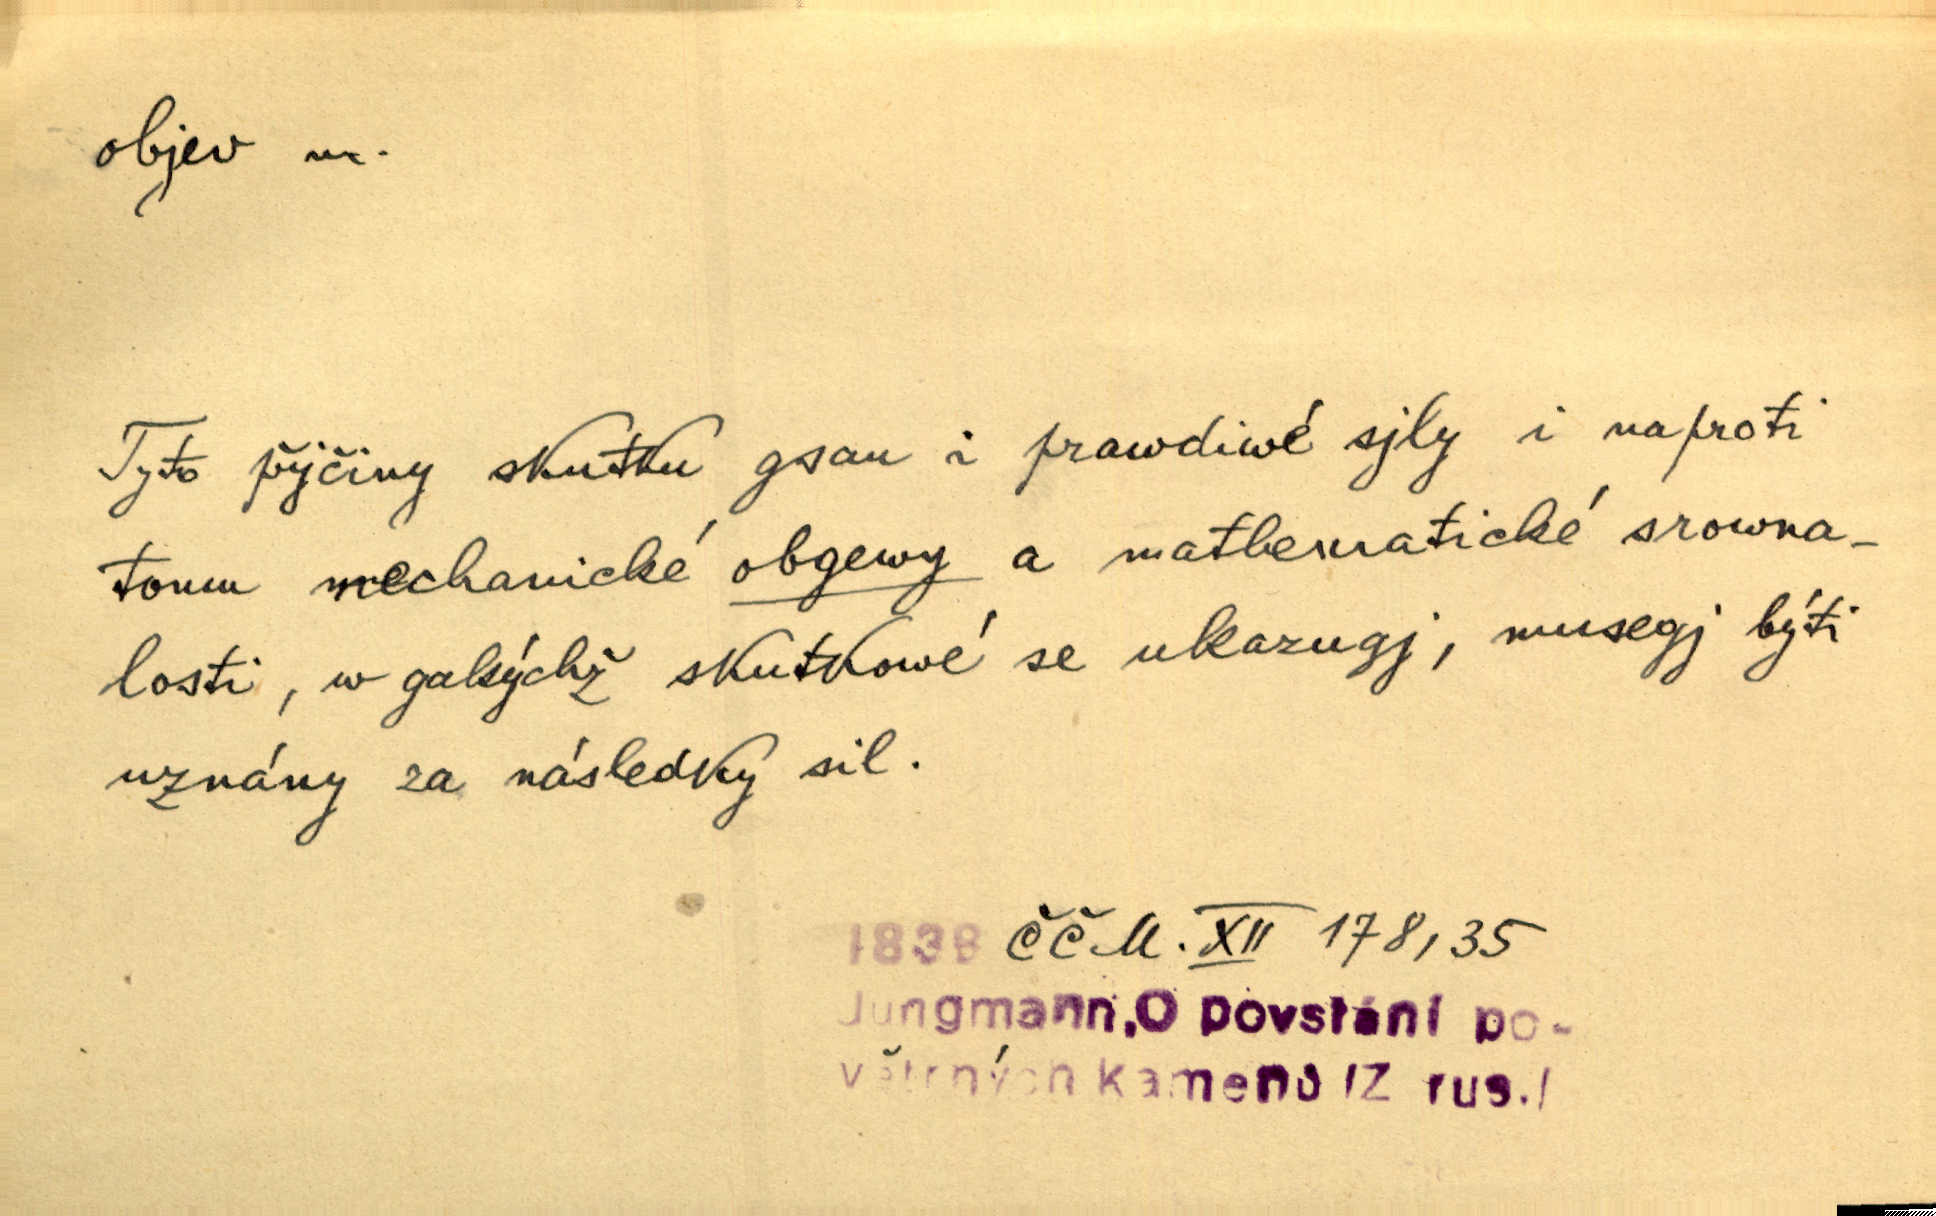 objev m.
Tyto přjčiny skutku gsau i prawdiwé sjly i naproti
tomu mechanické obgewy a mathematické srowna-
losti, w gakýchž skutkowé se ukazugj, musegj býti
uznány za následky sil.
1838 ČČM. XII 178,35
Jungmann,O povstání po-
větrných kamenů /Z rus./